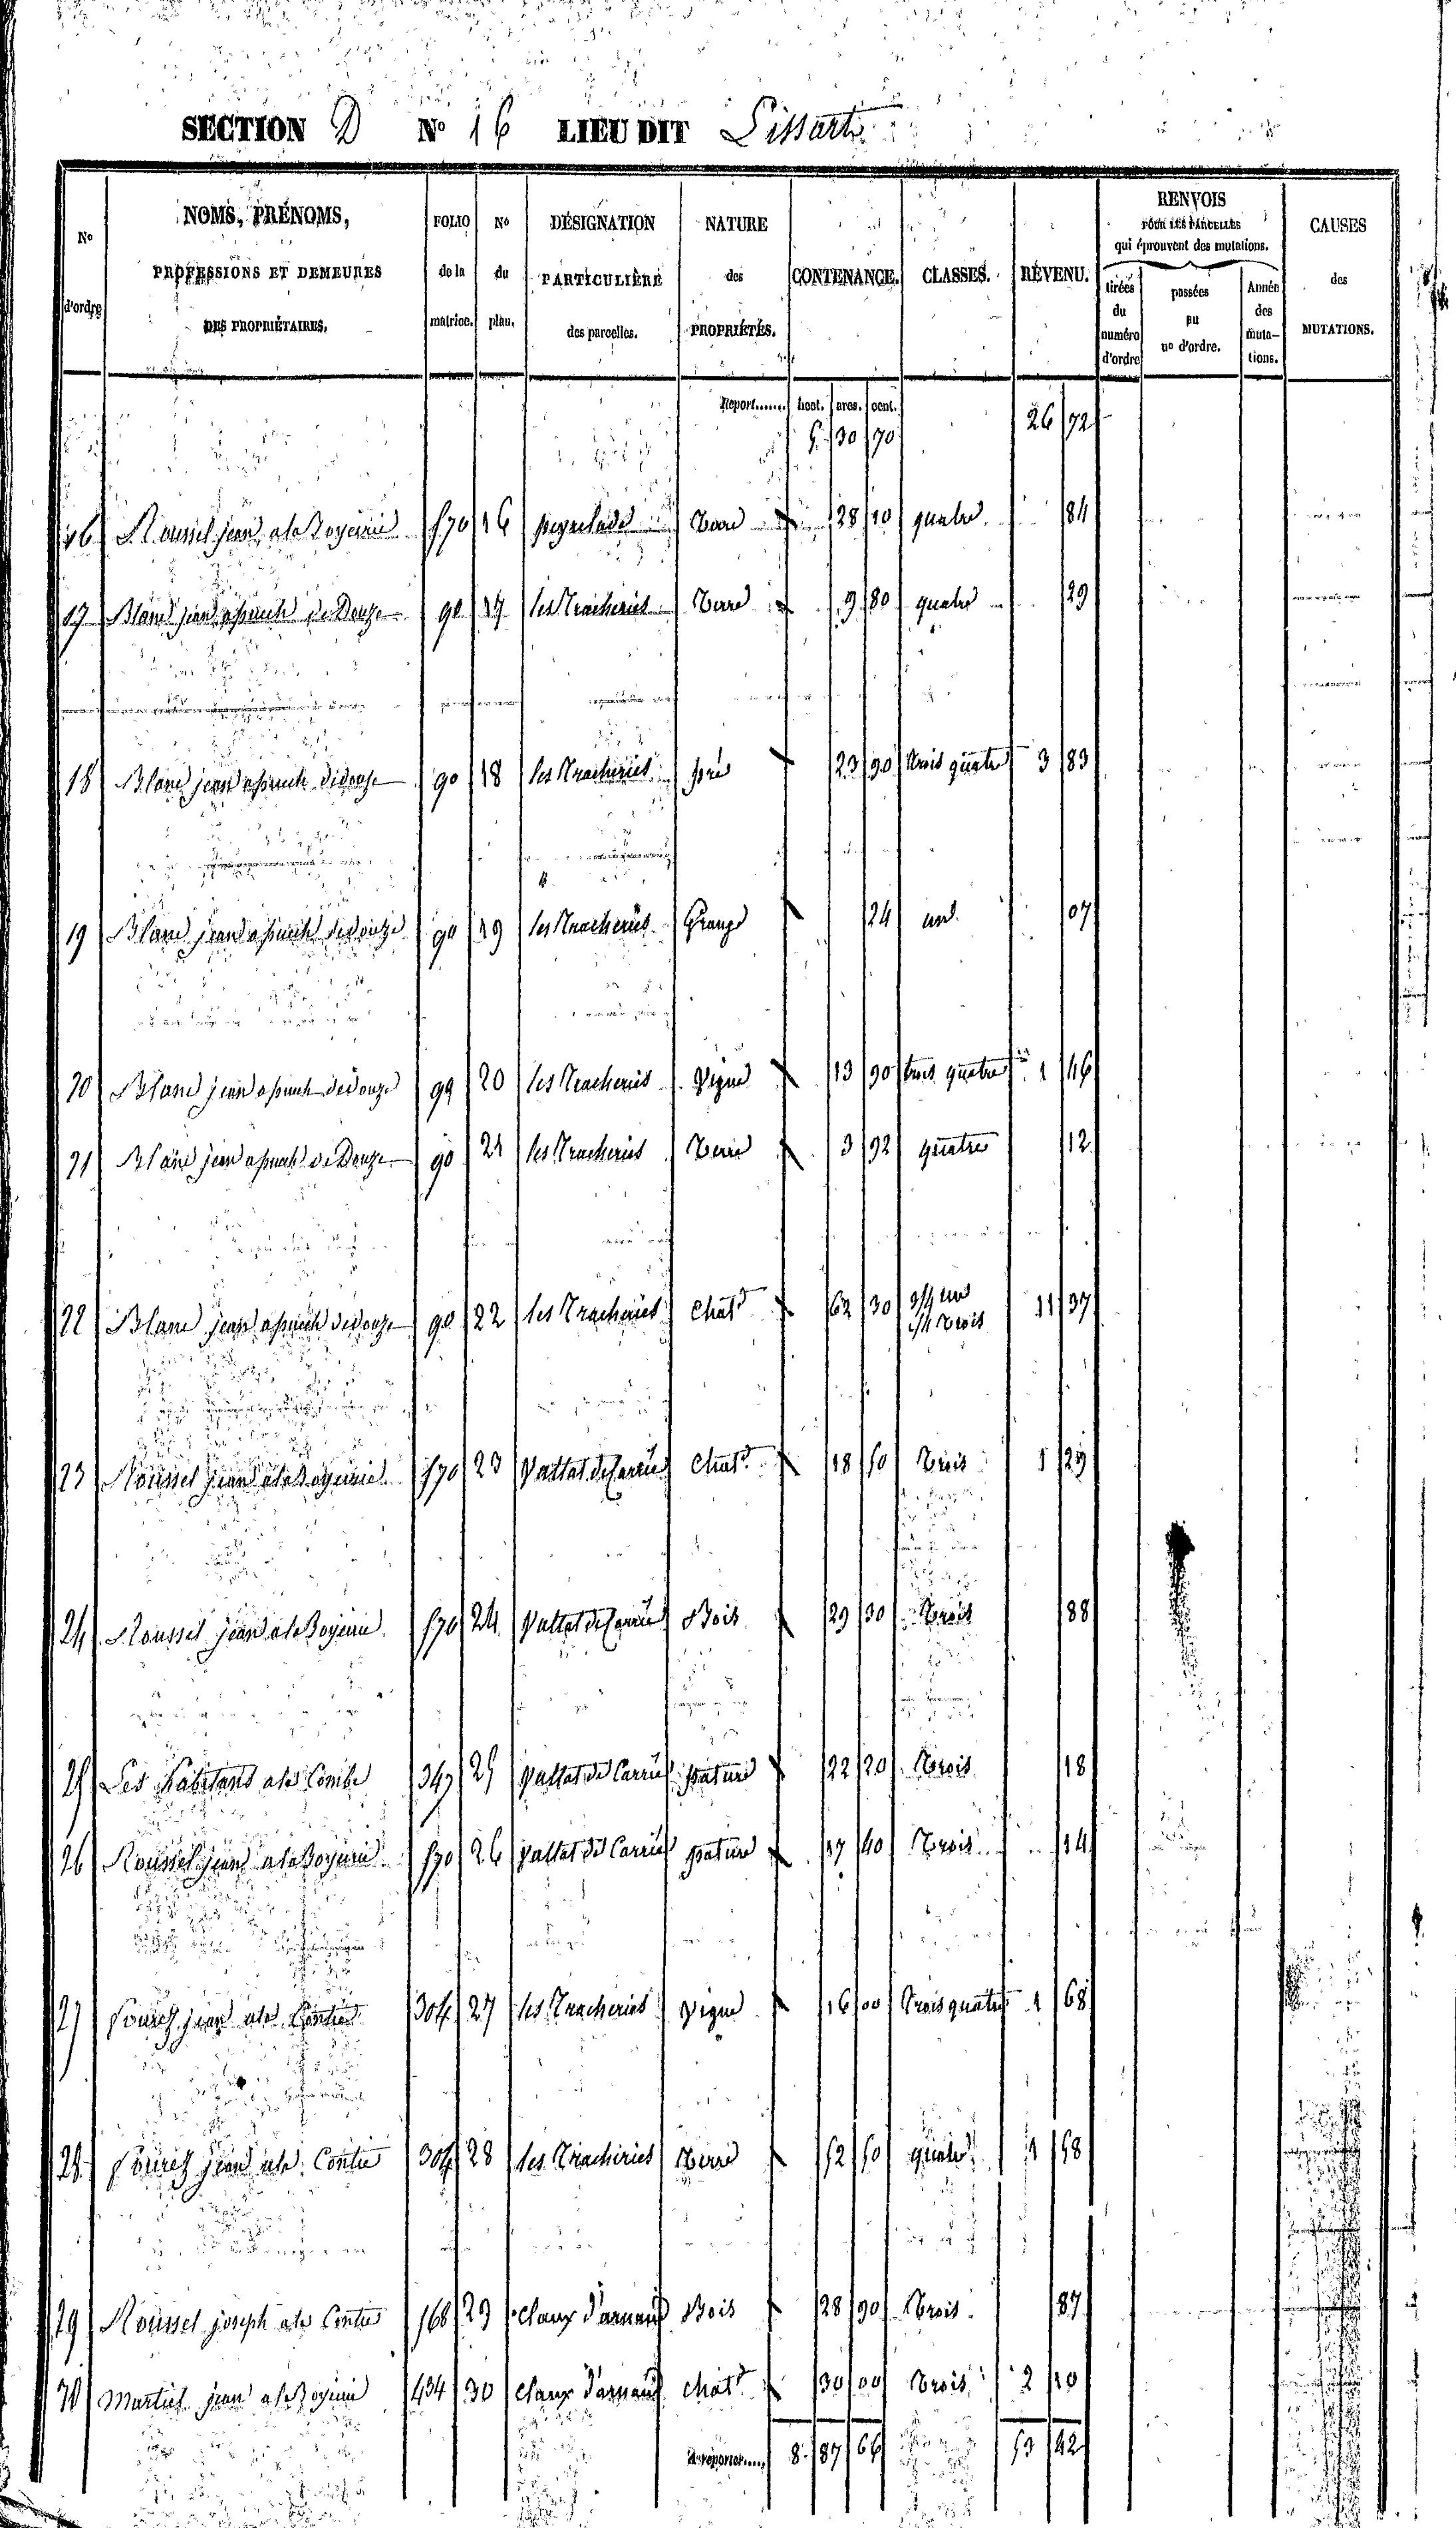 SECTION D N° 16 LIEU DIT Lissart
N° d'ordre
NOMS, PRÉNOMS, PROFESSIONS ET DEMEURES DES PROPRIÉTAIRES.
FOLIO de la matrice.
N° du plan.
DÉSIGNATION PARTICULIÈRE des parcelles.
NATURE des PROPRIÉTÉS.
CONTENANCE.
CLASSES.
REVENU.
RENVOIS POUR LES PARCELLES qui éprouvent des mutations.
tirées du numéro d'ordre
passées au n° d'ordre.
Année des mutations.
CAUSES des MUTATIONS.
Report....... hect. ares. cent.
5 30 70 26 72
16 Roussel jean a la Boyerie 570 16 peyrelade Terre 28 10 quatre 84
17 Blanc jean a puech de Douze 90 17 les Tracheries Terre 9 80 quatre 29
18 Blanc jean a puech de douze 90 18 les Tracheries pré 23 90 trois quatre 3 83
19 Blanc jean a puech de douze 90 19 les Tracheries Grange 24 un 07
20 Blanc jean a puech de douze 90 20 les Tracheries Vigne 13 90 trois quatre 1 46
21 Blanc jean a puech de Douze 90 21 les Tracheries Terre 3 92 quatre 12
22 Blanc jean a puech de douze 90 22 les Tracheries Chat 62 30 3/4 un 1/4 trois 11 37
23 Roussel jean a la Boyerie 570 23 Vallat de Carrie Chat 18 50 Trois 1 29
24 Roussel jean a la Boyerie 570 24 Vallat de Carrie Bois 29 30 Trois 88
25 Les habitans a la Combe 347 25 Vallat de Carrie pature 22 20 Trois 18
26 Roussel jean a la Boyerie 570 26 Vallat de Carrie pature 17 40 Trois 14
27 jean a la 304 27 les Tracheries Vigne 16 00 Trois quatre 1 68
28 jean a la Contie 304 28 les Tracheries Terre 52 50 quatre 1 58
29 Roussel joseph a la Contie 568 29 Claux d'arnaud Bois 28 90 Trois 87
30 Martiel jean a la Boyerie 434 30 Claux d'arnaud Chat 30 00 Trois 2 10
A reporter..... 8 87 66 53 42